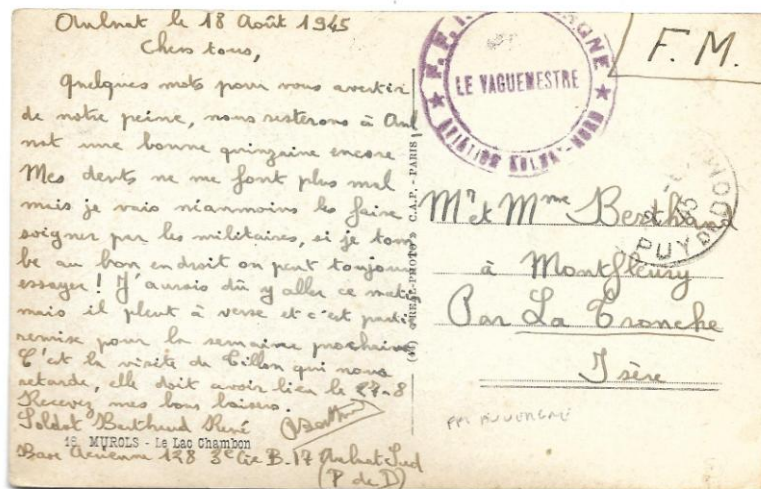 Aulnat le 18 Août 1945
Chers tous,
Quelques mots pour vous avertir
de notre peine, nous resterons à Aul
nat une bonne quinzaine encore
Mes dents ne me font plus mal
mais je vais néanmoins les faire
soigner par les militaires, si je tom
be au bon endroit on peut toujours
essayer ! J'aurais dû y aller ce matin
mais il pleut à verse et c'est partie
remise pour la semaine prochaine
C'est la visite du Tillon qui nous
retarde, elle doit avoir lieu le 27-8
Recevez mes bons baisers.
Soldat Berthaud René
18 MUROLS - Le Lac Chambon
Base Aérienne 128 3e Cie B. 17 Aulnat Sud
(P de D)
« REAL-PHOTO » C.A.P. - PARIS
F.M.
LE VAGUEMESTRE
AVIATION AULNAT-NORD
PUY DE DOME
Mr et Mme Berthaud
à Montfleury
Par La Tronche
Isère
FFI AUVERGNE